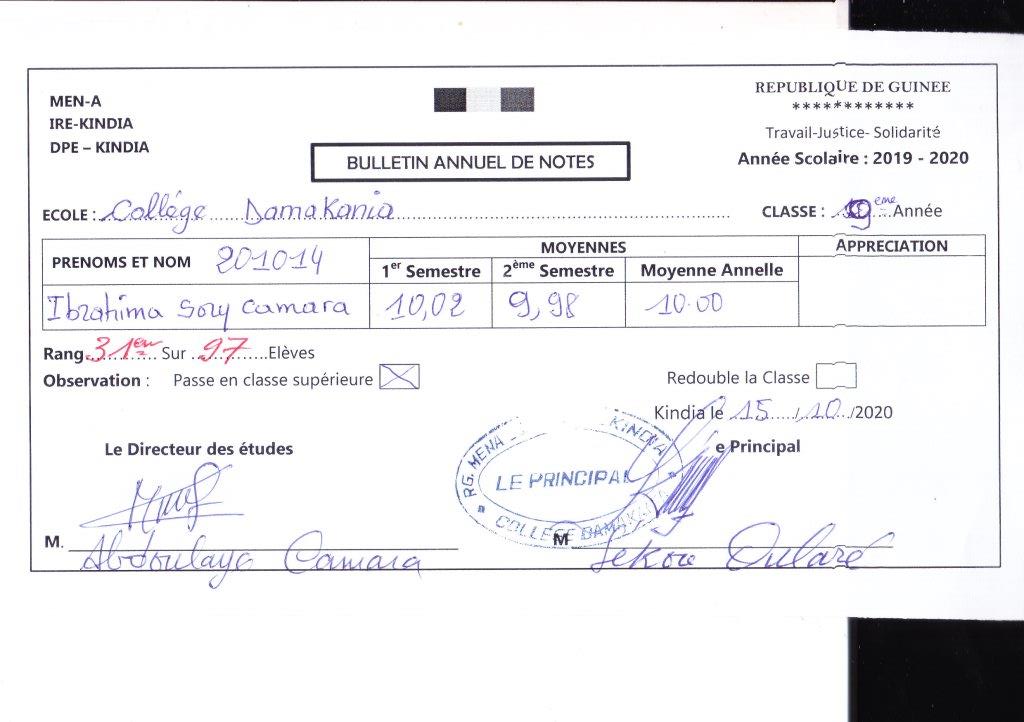 MEN-A
IRE-KINDIA
DPE – KINDIA
REPUBLIQUE DE GUINEE
************
Travail-Justice- Solidarité
Année Scolaire : 2019 - 2020
BULLETIN ANNUEL DE NOTES
ECOLE : Collége Damakania CLASSE : 9ème Année
PRENOMS ET NOM 201014 MOYENNES APPRECIATION
1er Semestre 2ème Semestre Moyenne Annelle
Ibrahima Sory Camara 10,02 9,98 10.00
Rang 31em Sur 97 Elèves
Observation : Passe en classe supérieure Redouble la Classe
Kindia le 15 / 10 /2020
Le Directeur des études e Principal
RG. MENA KINDIA
LE PRINCIPAL
COLLEGE DAMAKA
M. Abdoulaye Camara M Sekou Oularé